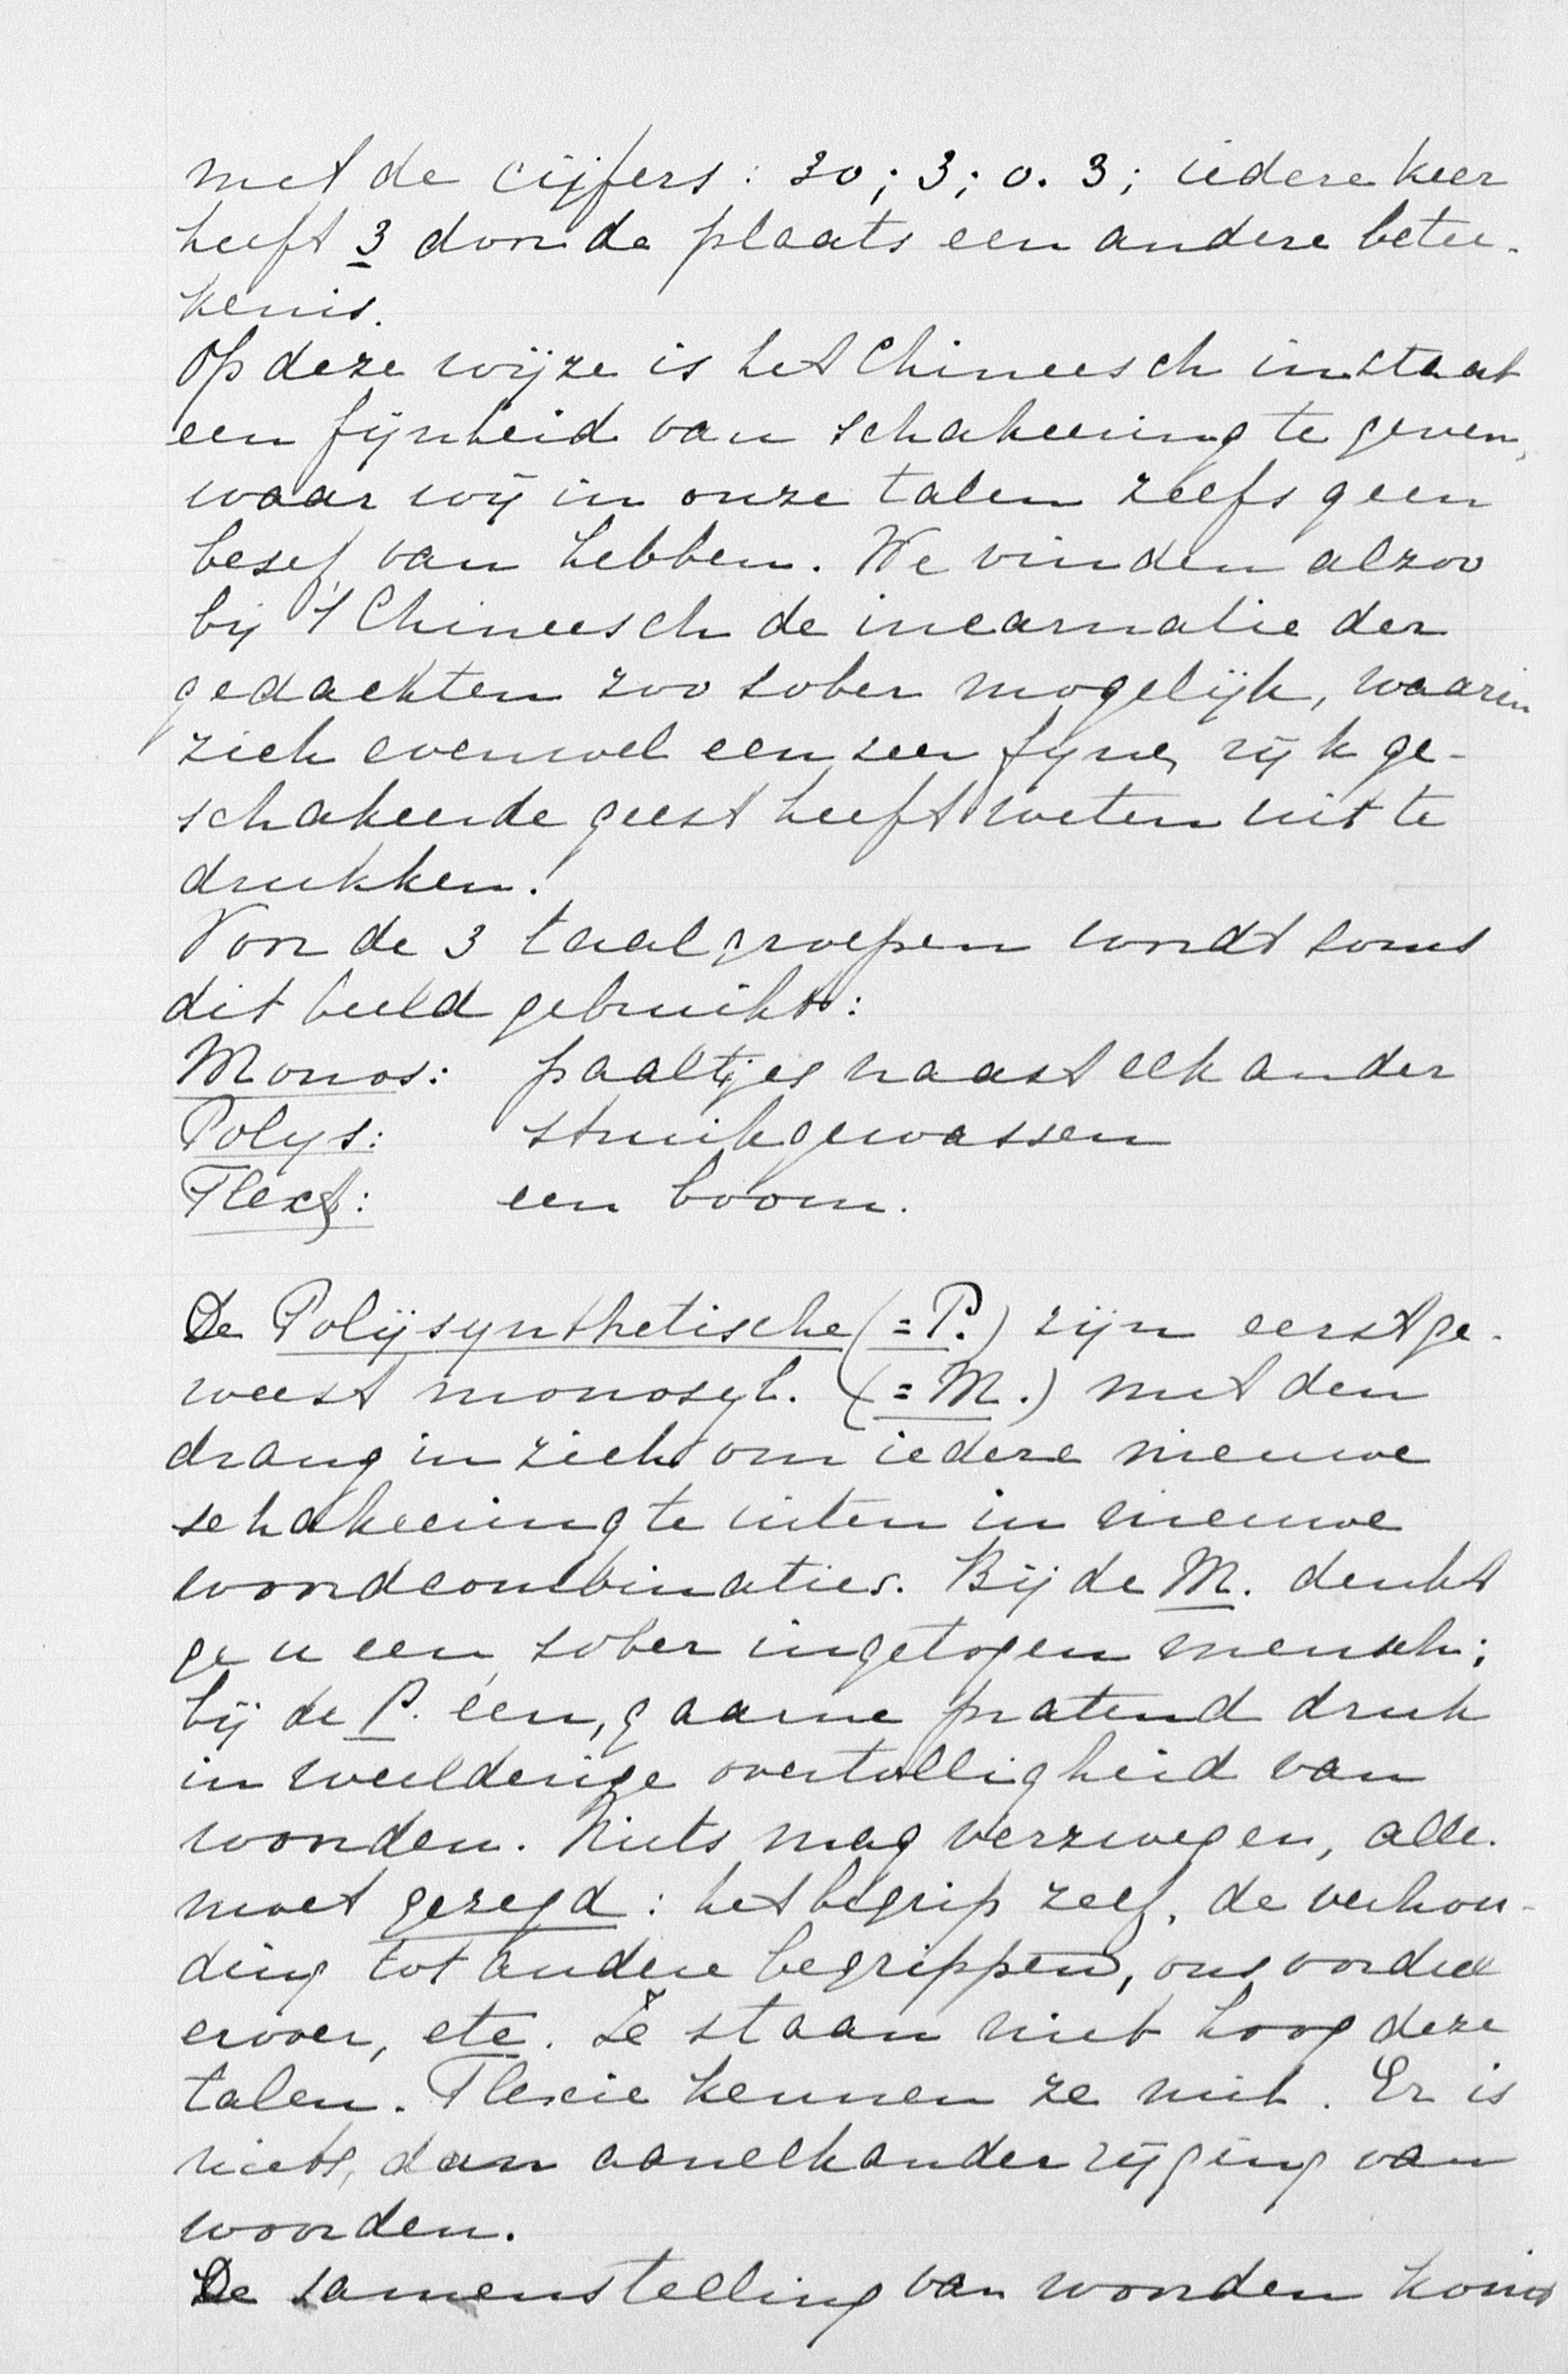 met de cijfers: 30; 3; 0.3; iedere keer
heeft 3 door de plaats een andere betee-
kenis.
Op deze wijze is het Chineesch in staat
een fijnheid van schakeering te geven,
waar wij in onze talen zelfs geen
besef van hebben. We vinden alzoo
bij 't Chineesch de incarnatie der
gedachten zoo sober mogelijk, waarin
zich evenwel een zeer fijne, rijk ge-
schakeerde geest heeft weten uit te
drukken!
Voor de 3 taalgroepen wordt soms
dit beeld gebruikt:
Monos: paaltjes naast elkander
Polys: struikgewassen
Flex: een boom.
De Polijsynthetische (=P.) zijn eerst ge-
weest monosyl. (=M.) met den
drang in zich om iedere nieuwe
schakeering te uiten in nieuwe
woordcombinaties. Bij de M. denkt
ge u een sober ingetogen mensch;
bij de P. een, gaarne pratend druk
in weelderige overtolligheid van
woorden. Niets mag verzwegen, alle
moet gezegd: het begrip zelf, de verhou-
ding tot andere begrippen, ons oordeel
erover, etc. Ze staan niet hoog deze
talen. Flexie kennen ze niet. Er is
niets, dan aanelkander rijging van
woorden.
De samenstelling van woorden komt